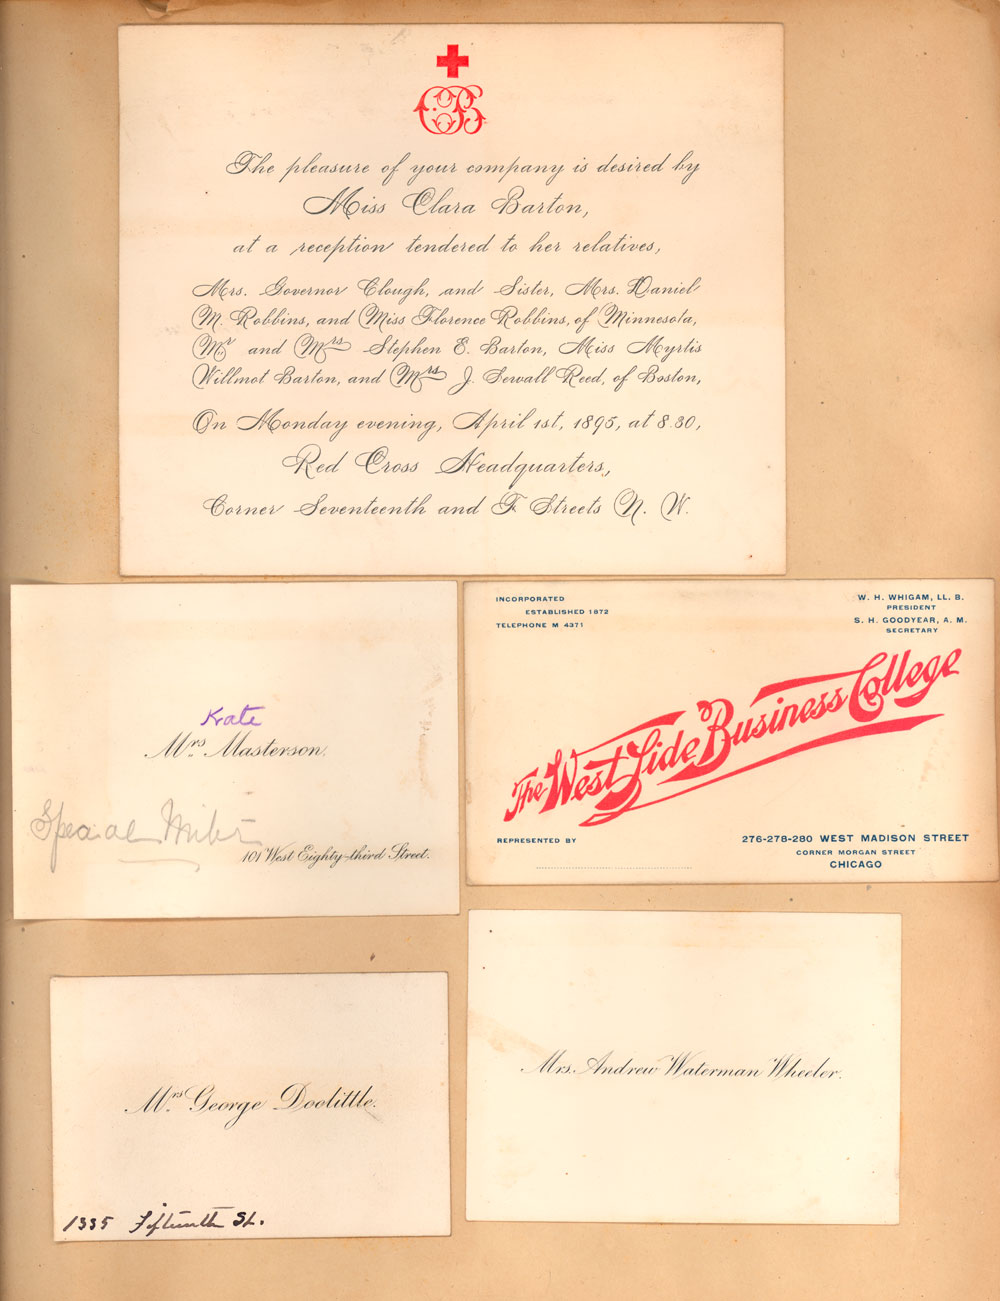 CB
The pleasure of your company is desired by
Miss Clara Barton,
at a reception tendered to her relatives,
Mrs. Governor Clough, and Sister, Mrs. Daniel
M. Robbins, and Miss Florence Robbins, of Minnesota,
Mr. and Mrs Stephen E. Barton, Miss Myrtis
Willmot Barton, and Mrs J. Sewall Reed, of Boston,
On Monday evening, April 1st, 1895, at 8.30,
Red Cross Headquarters,
Corner Seventeenth and F Streets N. W.
Kate
Mrs. Masterson.
Special
101 West Eighty-third Street.
INCORPORATED
ESTABLISHED 1872
TELEPHONE M 4371
W. H. WHIGAM, LL. B.
PRESIDENT
S. H. GOODYEAR, A. M.
SECRETARY
The West Side Business College
REPRESENTED BY
276-278-280 WEST MADISON STREET
CORNER MORGAN STREET
CHICAGO
Mrs. George Doolittle.
1335 Fifteenth St.
Mrs. Andrew Waterman Wheeler.